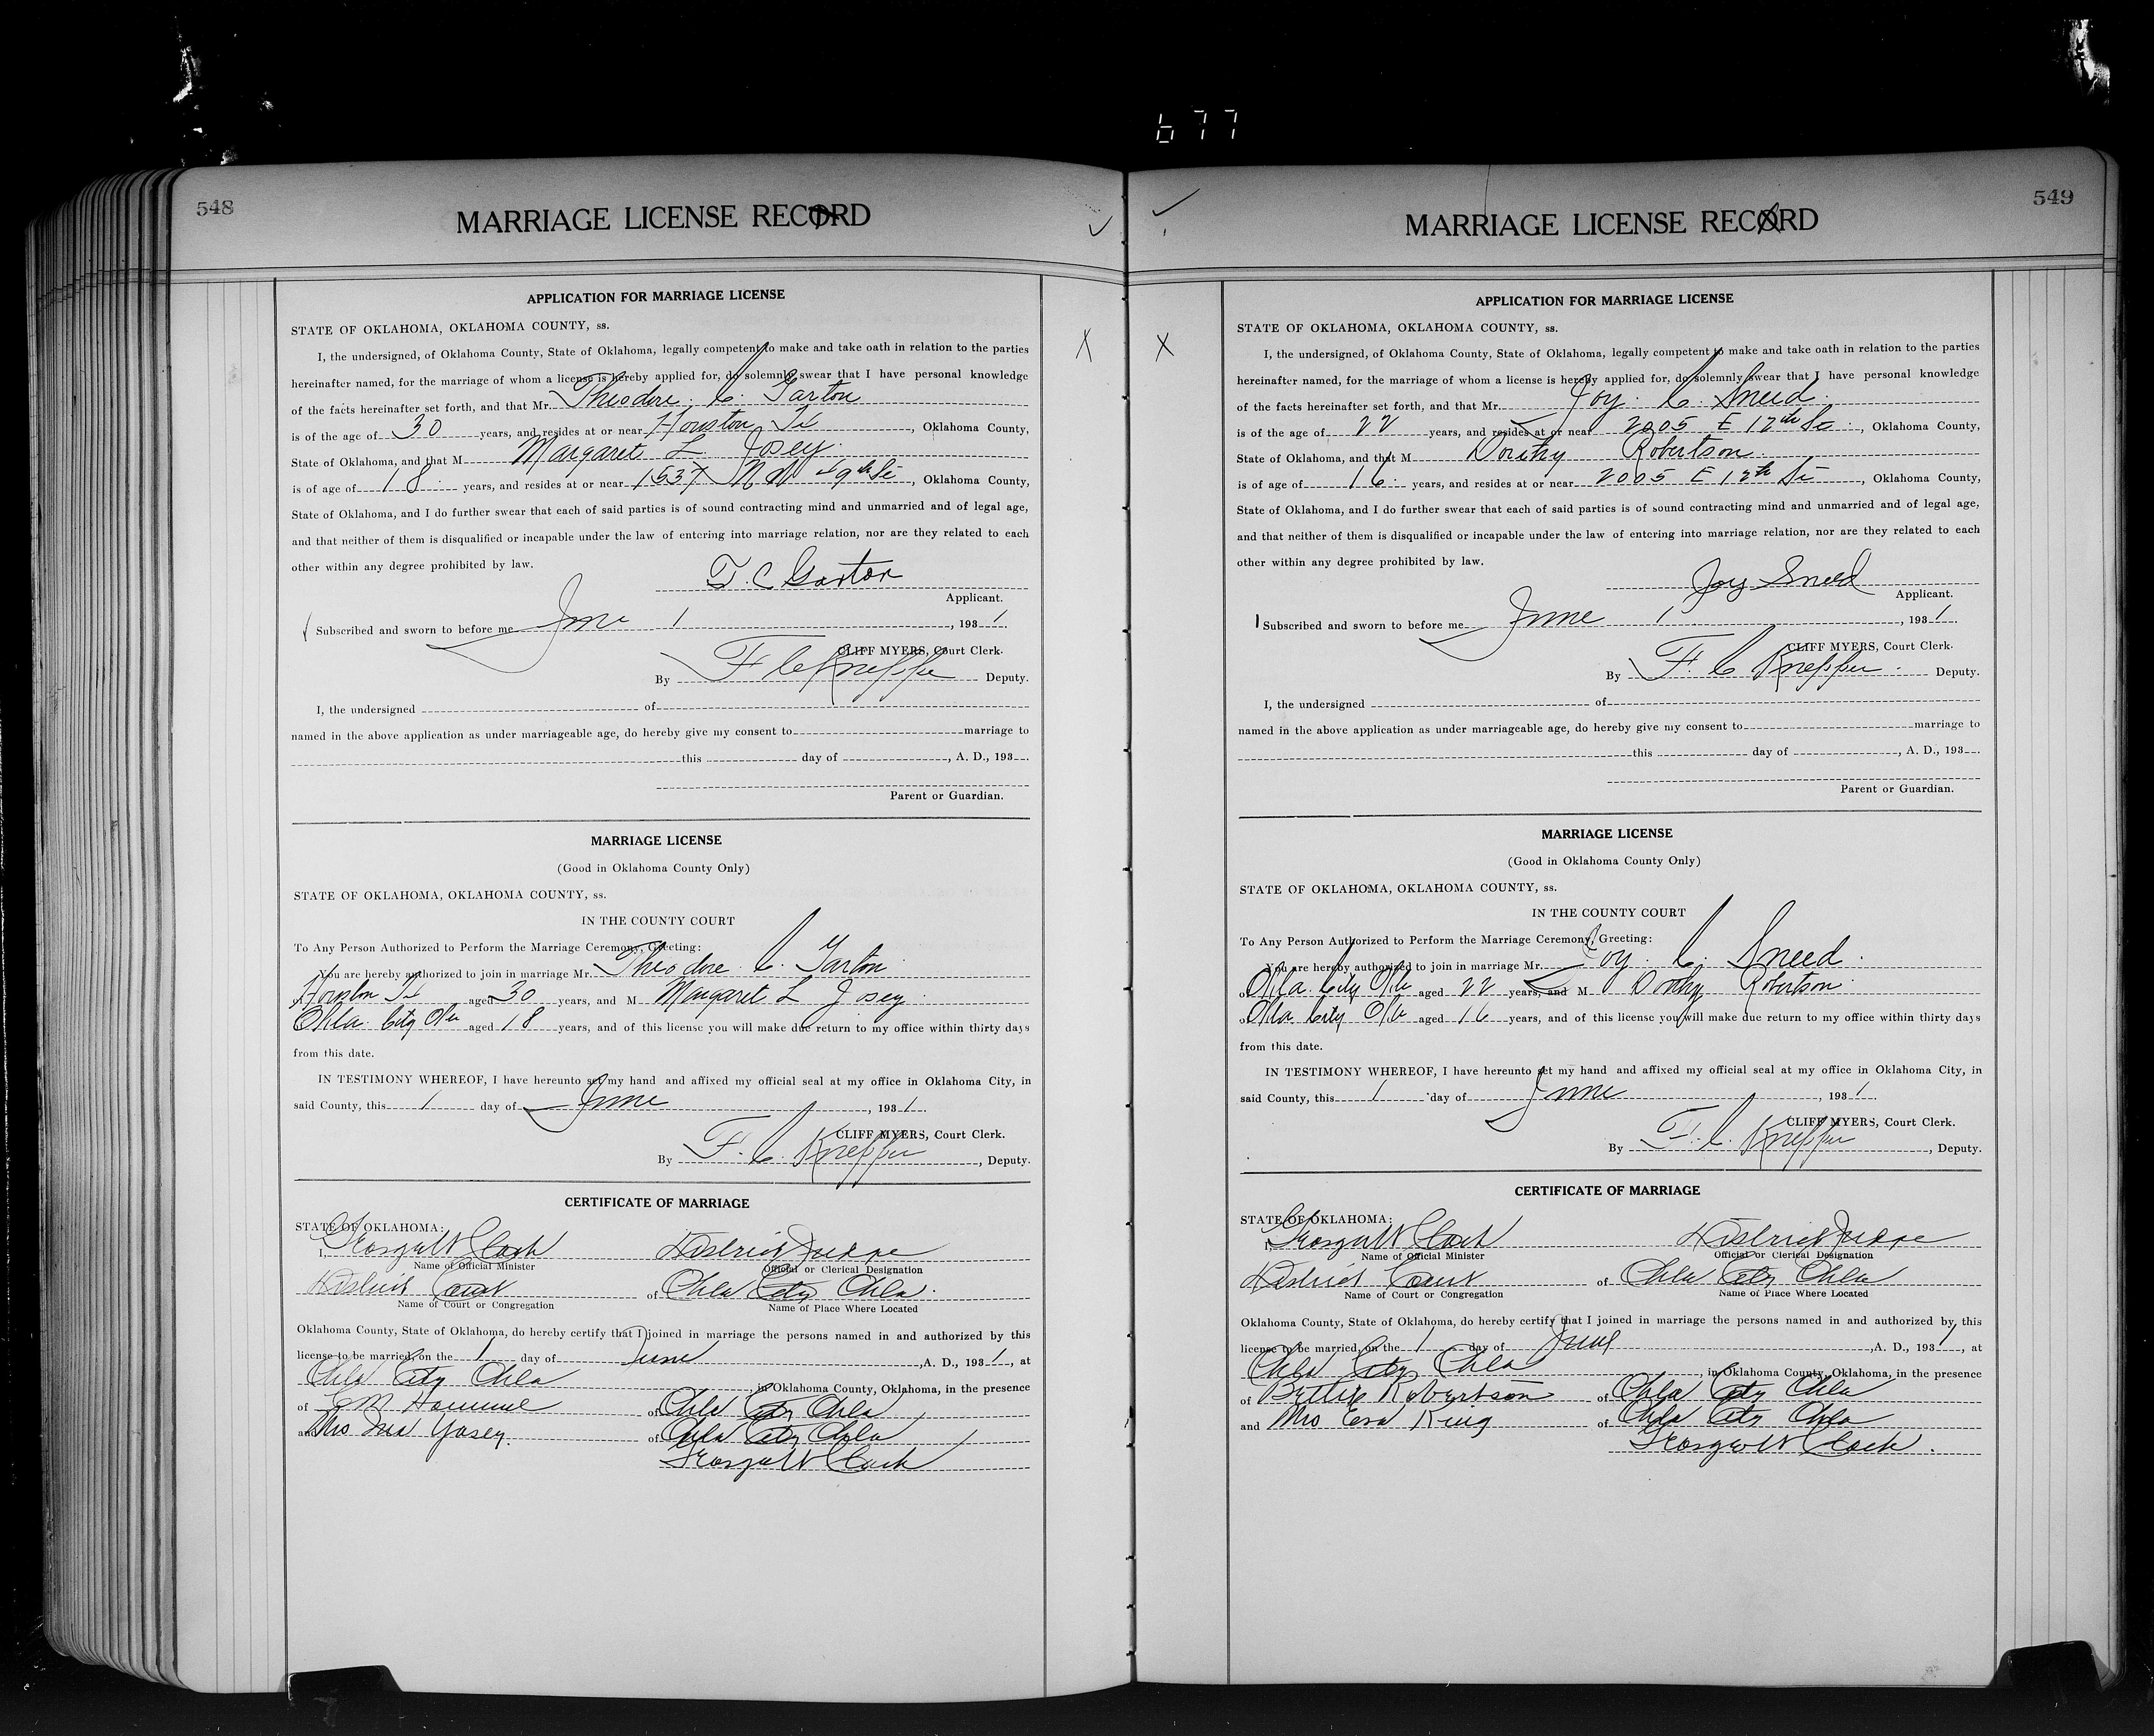 677
548
MARRIAGE LICENSE RECORD
APPLICATION FOR MARRIAGE LICENSE
STATE OF OKLAHOMA, OKLAHOMA COUNTY, ss.
I, the undersigned, of Oklahoma County, State of Oklahoma, legally competent to make and take oath in relation to the parties
hereinafter named, for the marriage of whom a license is hereby applied for, do solemnly swear that I have personal knowledge
of the facts hereinafter set forth, and that Mr. Theodore C. Garton
is of the age of 30 years, and resides at or near Houston Tx, Oklahoma County,
State of Oklahoma, and that M Margaret L Josey
is of age of 18 years, and resides at or near 1537 N W 29th St, Oklahoma County,
State of Oklahoma, and I do further swear that each of said parties is of sound contracting mind and unmarried and of legal age,
and that neither of them is disqualified or incapable under the law of entering into marriage relation, nor are they related to each
other within any degree prohibited by law.
T. C Garton
Applicant.
Subscribed and sworn to before me June 1, 1931
CLIFF MYERS, Court Clerk.
By F C Knepper Deputy.
I, the undersigned of
named in the above application as under marriageable age, do hereby give my consent to marriage to
this day of , A. D., 193
Parent or Guardian.
MARRIAGE LICENSE
(Good in Oklahoma County Only)
STATE OF OKLAHOMA, OKLAHOMA COUNTY, ss.
IN THE COUNTY COURT
To Any Person Authorized to Perform the Marriage Ceremony, Greeting:
You are hereby authorized to join in marriage Mr. Theodore C. Garton
Houston Tx aged 30 years, and M Margaret L Josey
Okla. City Okla aged 18 years, and of this license you will make due return to my office within thirty days
from this date.
IN TESTIMONY WHEREOF, I have hereunto set my hand and affixed my official seal at my office in Oklahoma City, in
said County, this 1 day of June, 1931.
CLIFF MYERS, Court Clerk.
By F. C. Knepper, Deputy.
CERTIFICATE OF MARRIAGE
STATE OF OKLAHOMA:
I, District Judge
Name of Official Minister Official or Clerical Designation
District Court of Okla City Okla.
Name of Court or Congregation Name of Place Where Located
Oklahoma County, State of Oklahoma, do hereby certify that I joined in marriage the persons named in and authorized by this
license to be married, on the 1 day of June, A. D., 1931, at
Okla City Okla in Oklahoma County, Oklahoma, in the presence
of of Okla City Okla
and Mrs Yosey. of Okla City Okla
549
MARRIAGE LICENSE RECORD
APPLICATION FOR MARRIAGE LICENSE
STATE OF OKLAHOMA, OKLAHOMA COUNTY, ss.
I, the undersigned, of Oklahoma County, State of Oklahoma, legally competent to make and take oath in relation to the parties
hereinafter named, for the marriage of whom a license is hereby applied for, do solemnly swear that I have personal knowledge
of the facts hereinafter set forth, and that Mr. Joy. C. Sneed
is of the age of 22 years, and resides at or near 2005 E 12th St, Oklahoma County,
State of Oklahoma, and that M Dorothy Robertson
is of age of 16 years, and resides at or near 2005 E 12th St, Oklahoma County,
State of Oklahoma, and I do further swear that each of said parties is of sound contracting mind and unmarried and of legal age,
and that neither of them is disqualified or incapable under the law of entering into marriage relation, nor are they related to each
other within any degree prohibited by law.
Joy Sneed
Applicant.
Subscribed and sworn to before me June 1, 1931.
CLIFF MYERS, Court Clerk.
By F. C Knepper Deputy.
I, the undersigned of
named in the above application as under marriageable age, do hereby give my consent to marriage to
this day of , A. D., 193
Parent or Guardian.
MARRIAGE LICENSE
(Good in Oklahoma County Only)
STATE OF OKLAHOMA, OKLAHOMA COUNTY, ss.
IN THE COUNTY COURT
To Any Person Authorized to Perform the Marriage Ceremony, Greeting:
You are hereby authorized to join in marriage Mr. Joy. C. Sneed.
of Okla. City Okla aged 22 years, and M Dorthy Robertson
of Okla City Okla aged 16 years, and of this license you will make due return to my office within thirty days
from this date.
IN TESTIMONY WHEREOF, I have hereunto set my hand and affixed my official seal at my office in Oklahoma City, in
said County, this 1 day of June, 1931.
CLIFF MYERS, Court Clerk.
By F. C. Knepper, Deputy.
CERTIFICATE OF MARRIAGE
STATE OF OKLAHOMA:
I, District Judge
Name of Official Minister Official or Clerical Designation
District Court of Okla City Okla
Name of Court or Congregation Name of Place Where Located
Oklahoma County, State of Oklahoma, do hereby certify that I joined in marriage the persons named in and authorized by this
license to be married, on the 1 day of June, A. D., 1931, at
Okla City Okla, in Oklahoma County, Oklahoma, in the presence
of Bettie Robertson of Okla City Okla
and Mrs Eva King of Okla City Okla